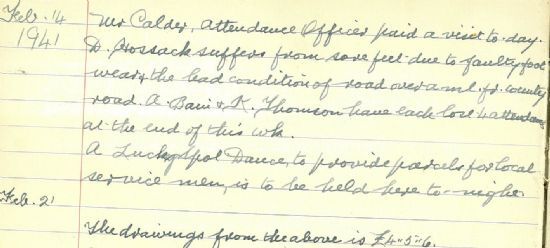 Feb. 14 Mr Calder, Attendance Officer paid a visit to-day.
1941 D. Hossack suffers from sore feet due to faulty foot
wear & the bad condition of road over a ml. fr. county
road. A. Bain & K. Thomson have each lost 4 attendances
at the end of this wk.
A Lucky Spot Dance, to provide parcels for local
service men, is to be held here to-night.
Feb. 21
The drawings from the above is £4"5"6.